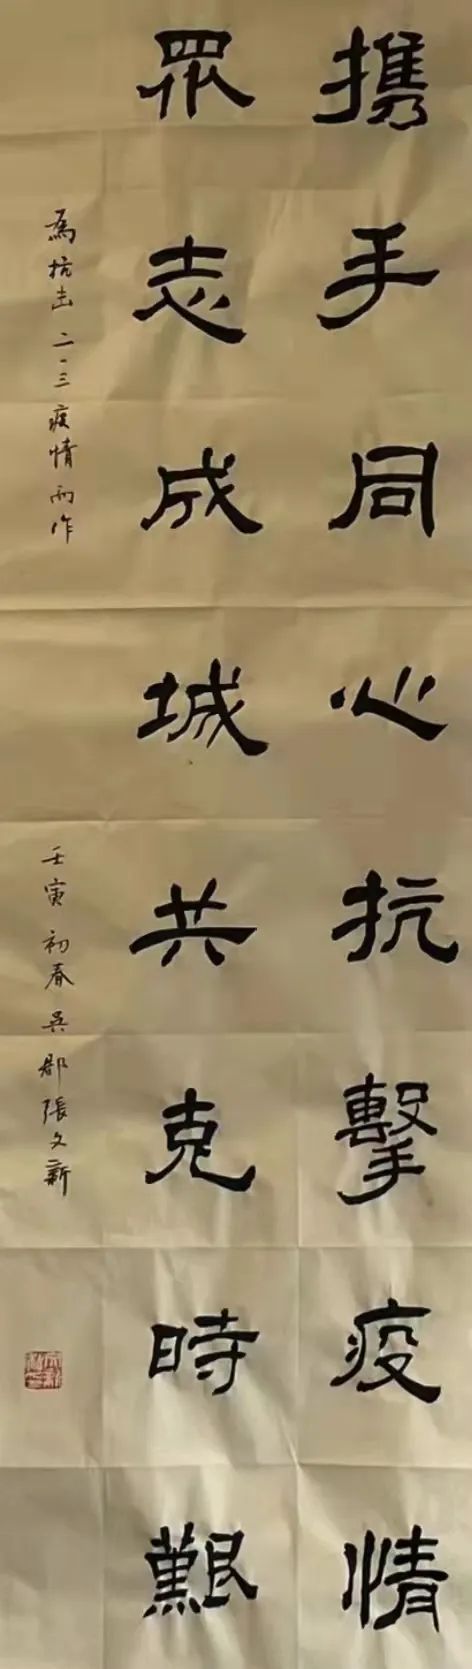 携手同心抗擊疫情
眾志成城共克時艱
爲抗击二·一三疫情而作
壬寅初春吳郡張文新